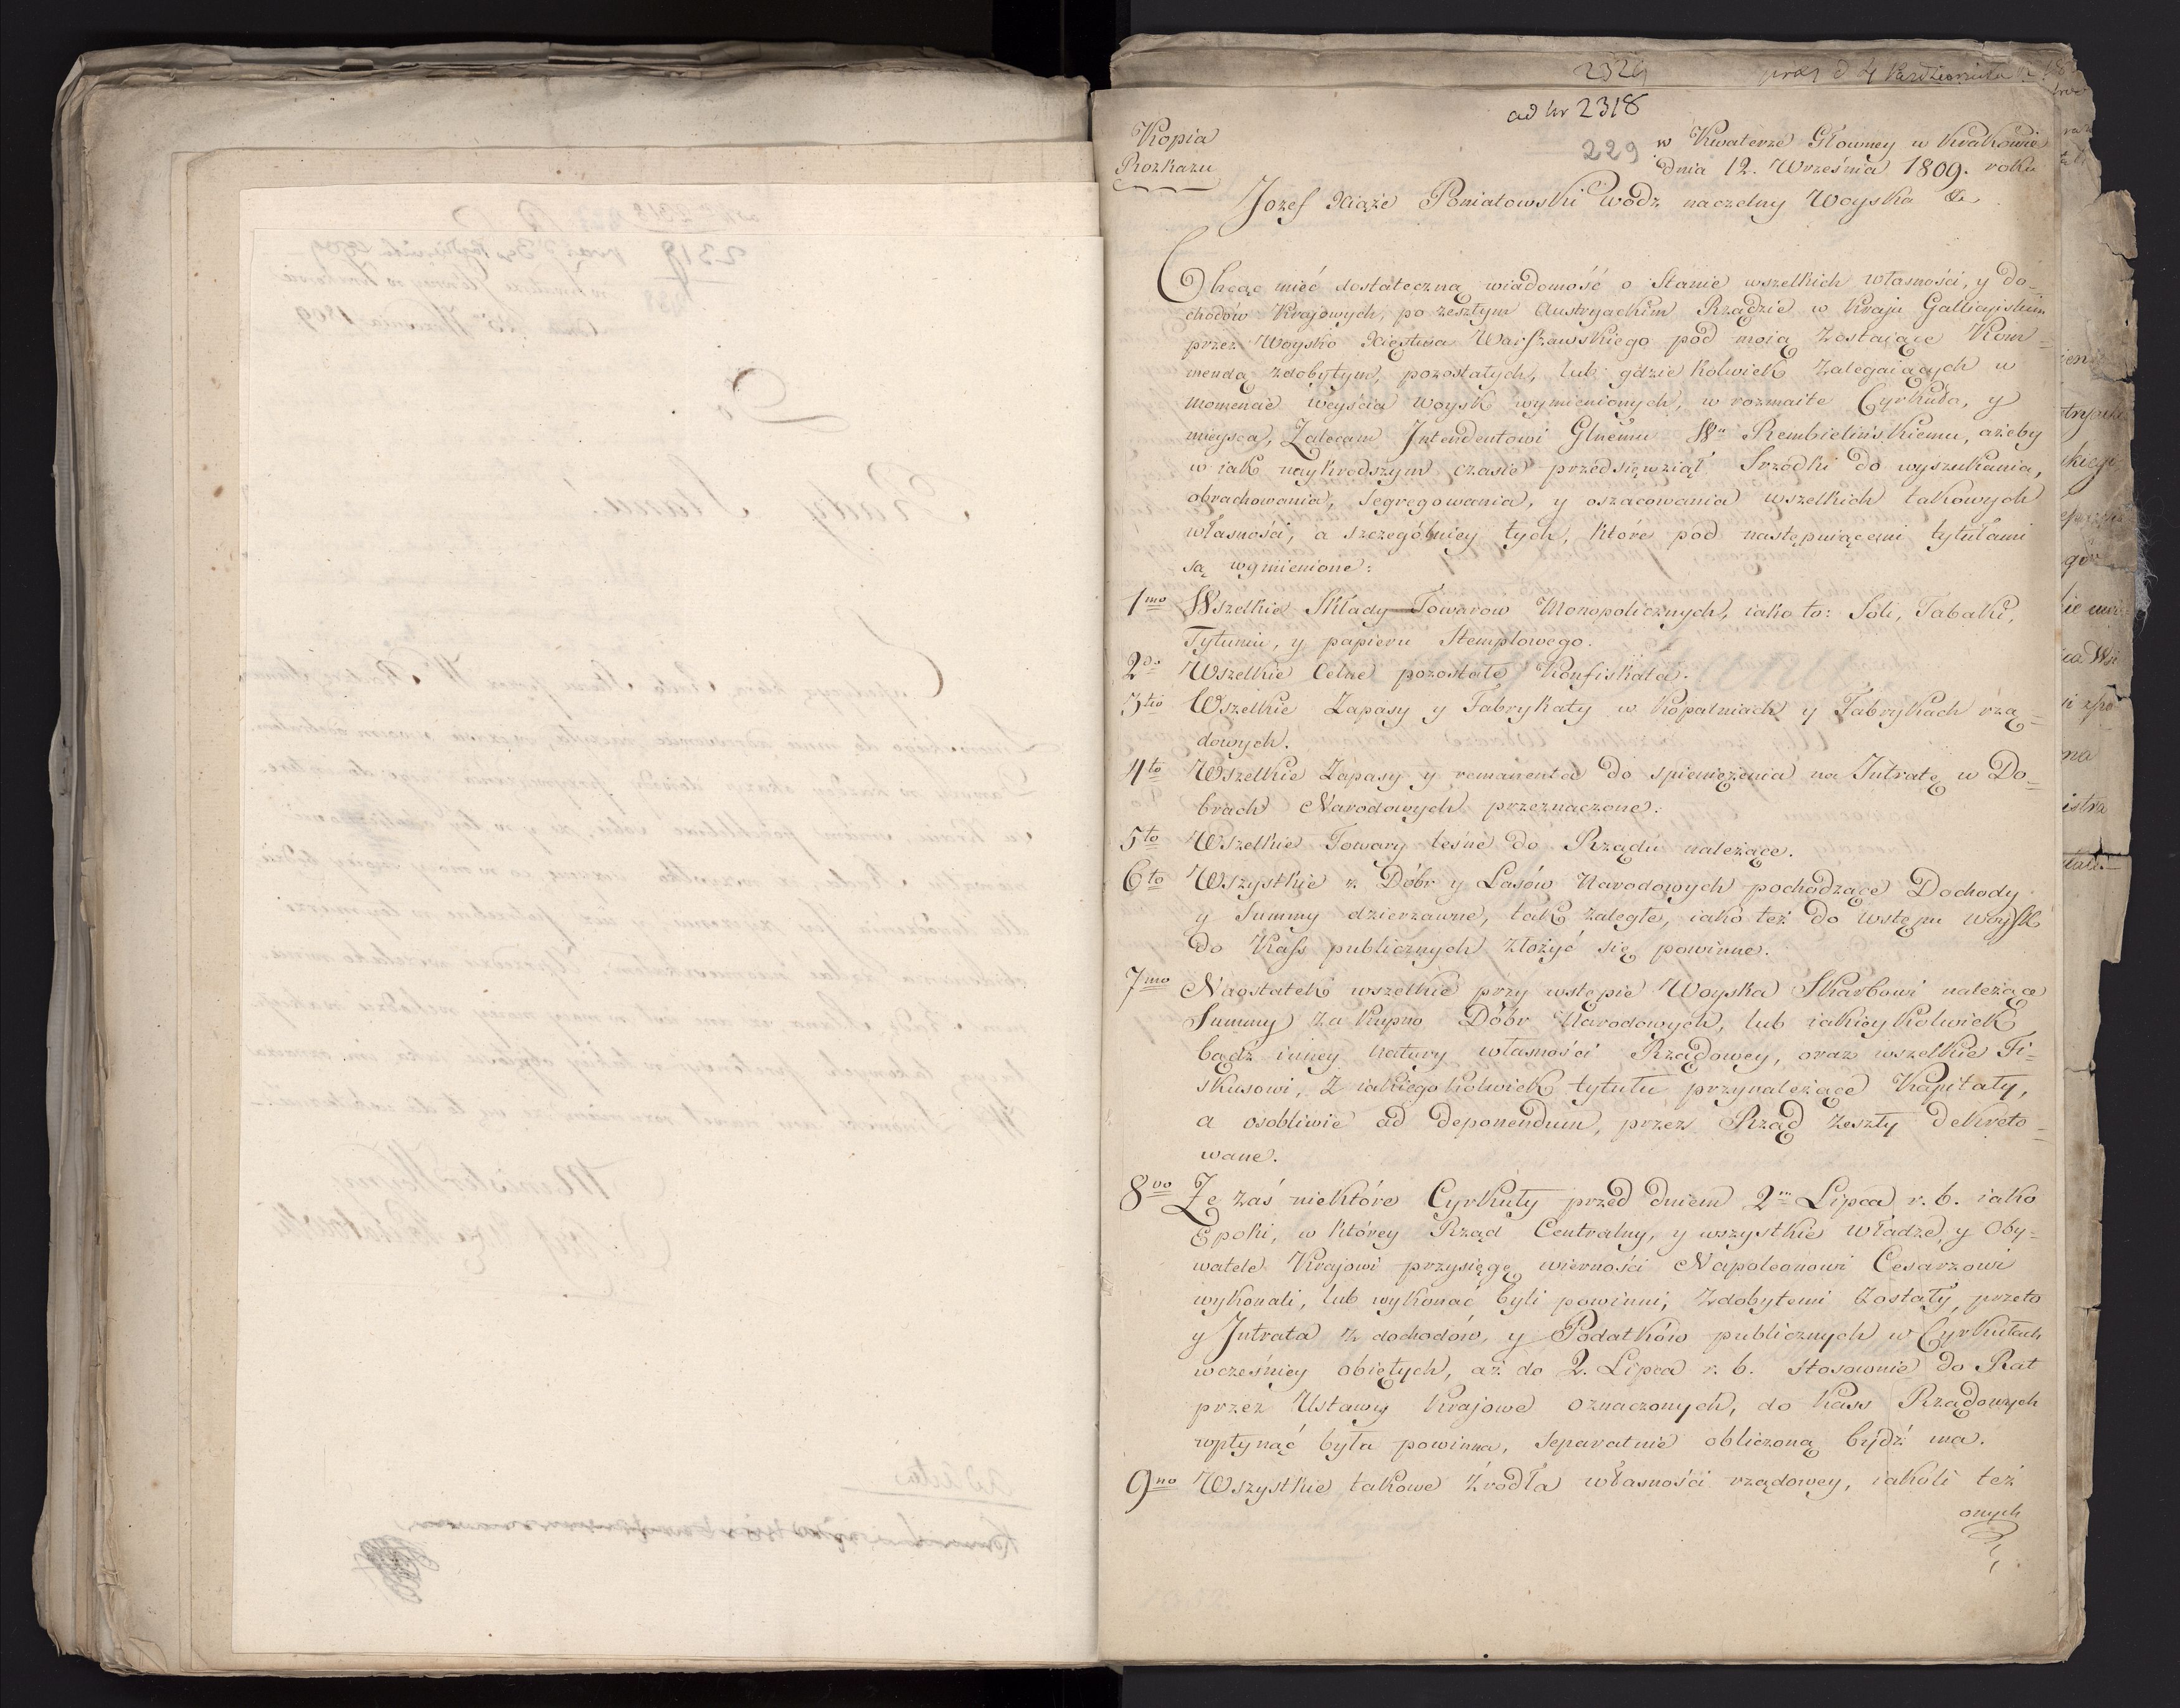 2329
ad Nr 2318
229
Kopia
Rozkazu
w Kwaterze Głowney w Krakowie
dnia 12. Września 1809. roku
Jozef Xiąże Poniatowski Wodz naczelny Woyska &c
Chcąc mieć dostateczną wiadomość o Stanie wszelkich własności, y do-
chodów Krajowych, po zeszłym Austryackim Rządzie w Kraju Gallicyiskim
przez Woysko Xięstwa Warszawskiego pod moią zostaiące Kom=
mendą zdobytym, pozostałych, lub gdzie kolwiek zalegaiących w
momencie weyścia woysk wymienionych, w rozmaite Cyrkuła, y
mieysca, Zalecam Intendentowi Głnemu Wu Rembielińskiemu, ażeby
w iak naykrodszym czasie przedsięwziął Srzodki do wyszukania,
obrachowania, segregowania, y oszacowania wszelkich takowych
własności, a szczególniey tych, które pod następuiącemi tytułami
są wymienione:
1mo Wszelkie Składy Towarow Monopolicznych, iako to: Soli, Tabaki,
Tytuniu, y papieru Stemplowego.
2do Wszelkie Celne pozostałe Konfiskata.
3tio Wszelkie Zapasy y Fabrykaty w Kopalniach y Fabrykach rzą=
dowych.
4to Wszelkie Zapasy y remanenta do spieniężenia na Intratę w Do=
brach Narodowych przeznaczone.
5to Wszelkie Towary leśne do Rządu należące.
6to Wszystkie z Dóbr y Lasów Narodowych pochodzące Dochody
y Summy dzierzawne, tak zaległe, iako też do wstępu woysk
do Kass publicznych złożyć się powinne.
7mo Naostatek wszelkie przy wstępie Woyska Skarbowi należące
Summy za kupno Dóbr Narodowych, lub iakieykolwiek
bądź inney natury własności Rządowey, oraz wszelkie Fi=
skusowi, z iakiegokolwiek tytułu przynależące Kapitały,
a osobliwie ad deponendum, przez Rząd zeszły dekreto=
wane.
8vo Ze zaś niektóre Cyrkuły przed dniem 2m Lipca r. b. iako
Epoki, w którey Rząd Centralny, y wszystkie władze, y Oby=
watele Krajowi przysięgę wierności Napoleonowi Cesarzowi
wykonali, lub wykonać byli powinni, zdobytemi zostały, przeto
y Intrata z dochodów, y Podatków publicznych w Cyrkułach
wcześniey obiętych, aż do 2. Lipca r. b. stosownie do Rat
przez Ustawy Krajowe oznaczonych, do Kass Rządowych
wpłynąć była powinna, separatnie obliczoną bydź ma.
9no Wszystkie takowe źrodła własności rządowey, iakoli też
onych